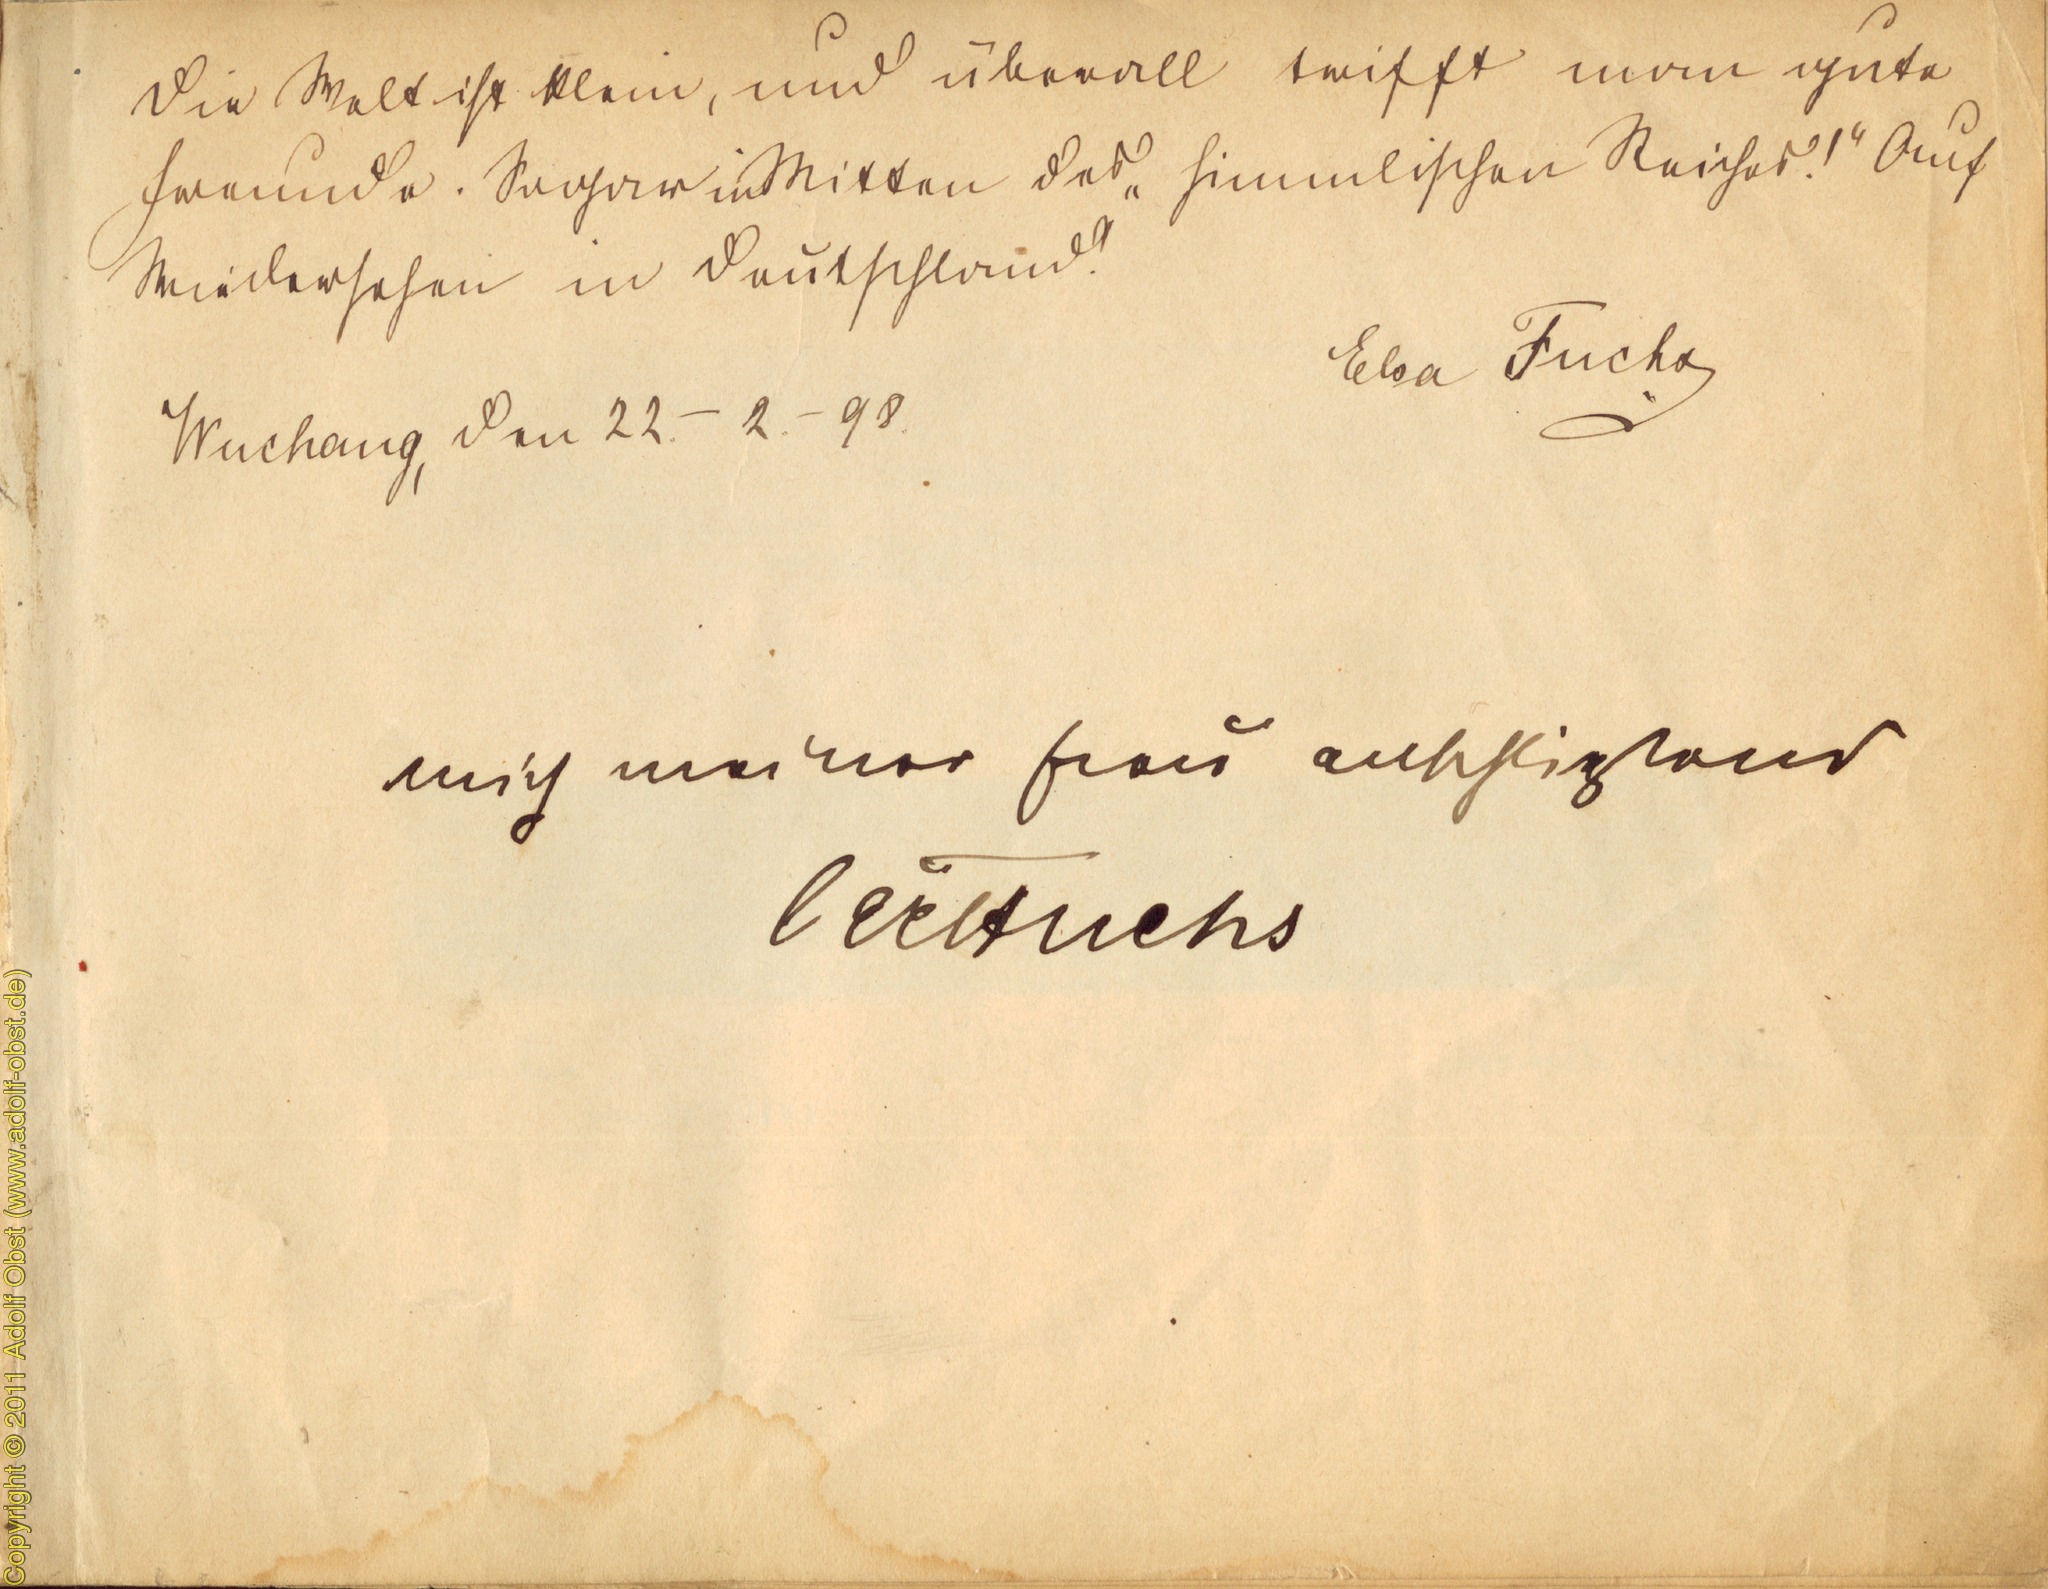 Die Welt ist klein, und überall trifft man gute
Freunde. Sogar in Mitten des „himmlischen Reiches!“ Auf
Wiedersehen in Deutschland!
Elsa Fuchs
Wuchang, den 22. – 2. – 98.
mich meiner Frau anschließend
Fuchs
Copyright © 2011 Adolf Obst (www.adolf-obst.de)